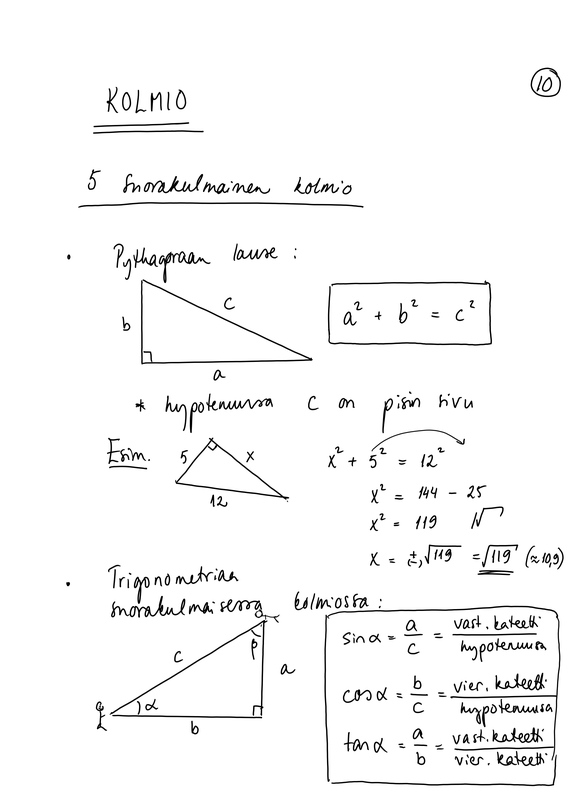 10
KOLMIO
5 Suorakulmainen kolmio
• Pythagoraan lause :
b c a
a² + b² = c²
* hypotenuusa c on pisin sivu
Esim. 5 x 12
x² + 5² = 12²
x² = 144 - 25
x² = 119 √
x = (±)√119 = √119 (≈10,9)
• Trigonometriaa
suorakulmaisessa kolmiossa :
c β a α b
sin α = a/c = vast. kateetti/hypotenuusa
cos α = b/c = vier. kateetti/hypotenuusa
tan α = a/b = vast. kateetti/vier. kateetti